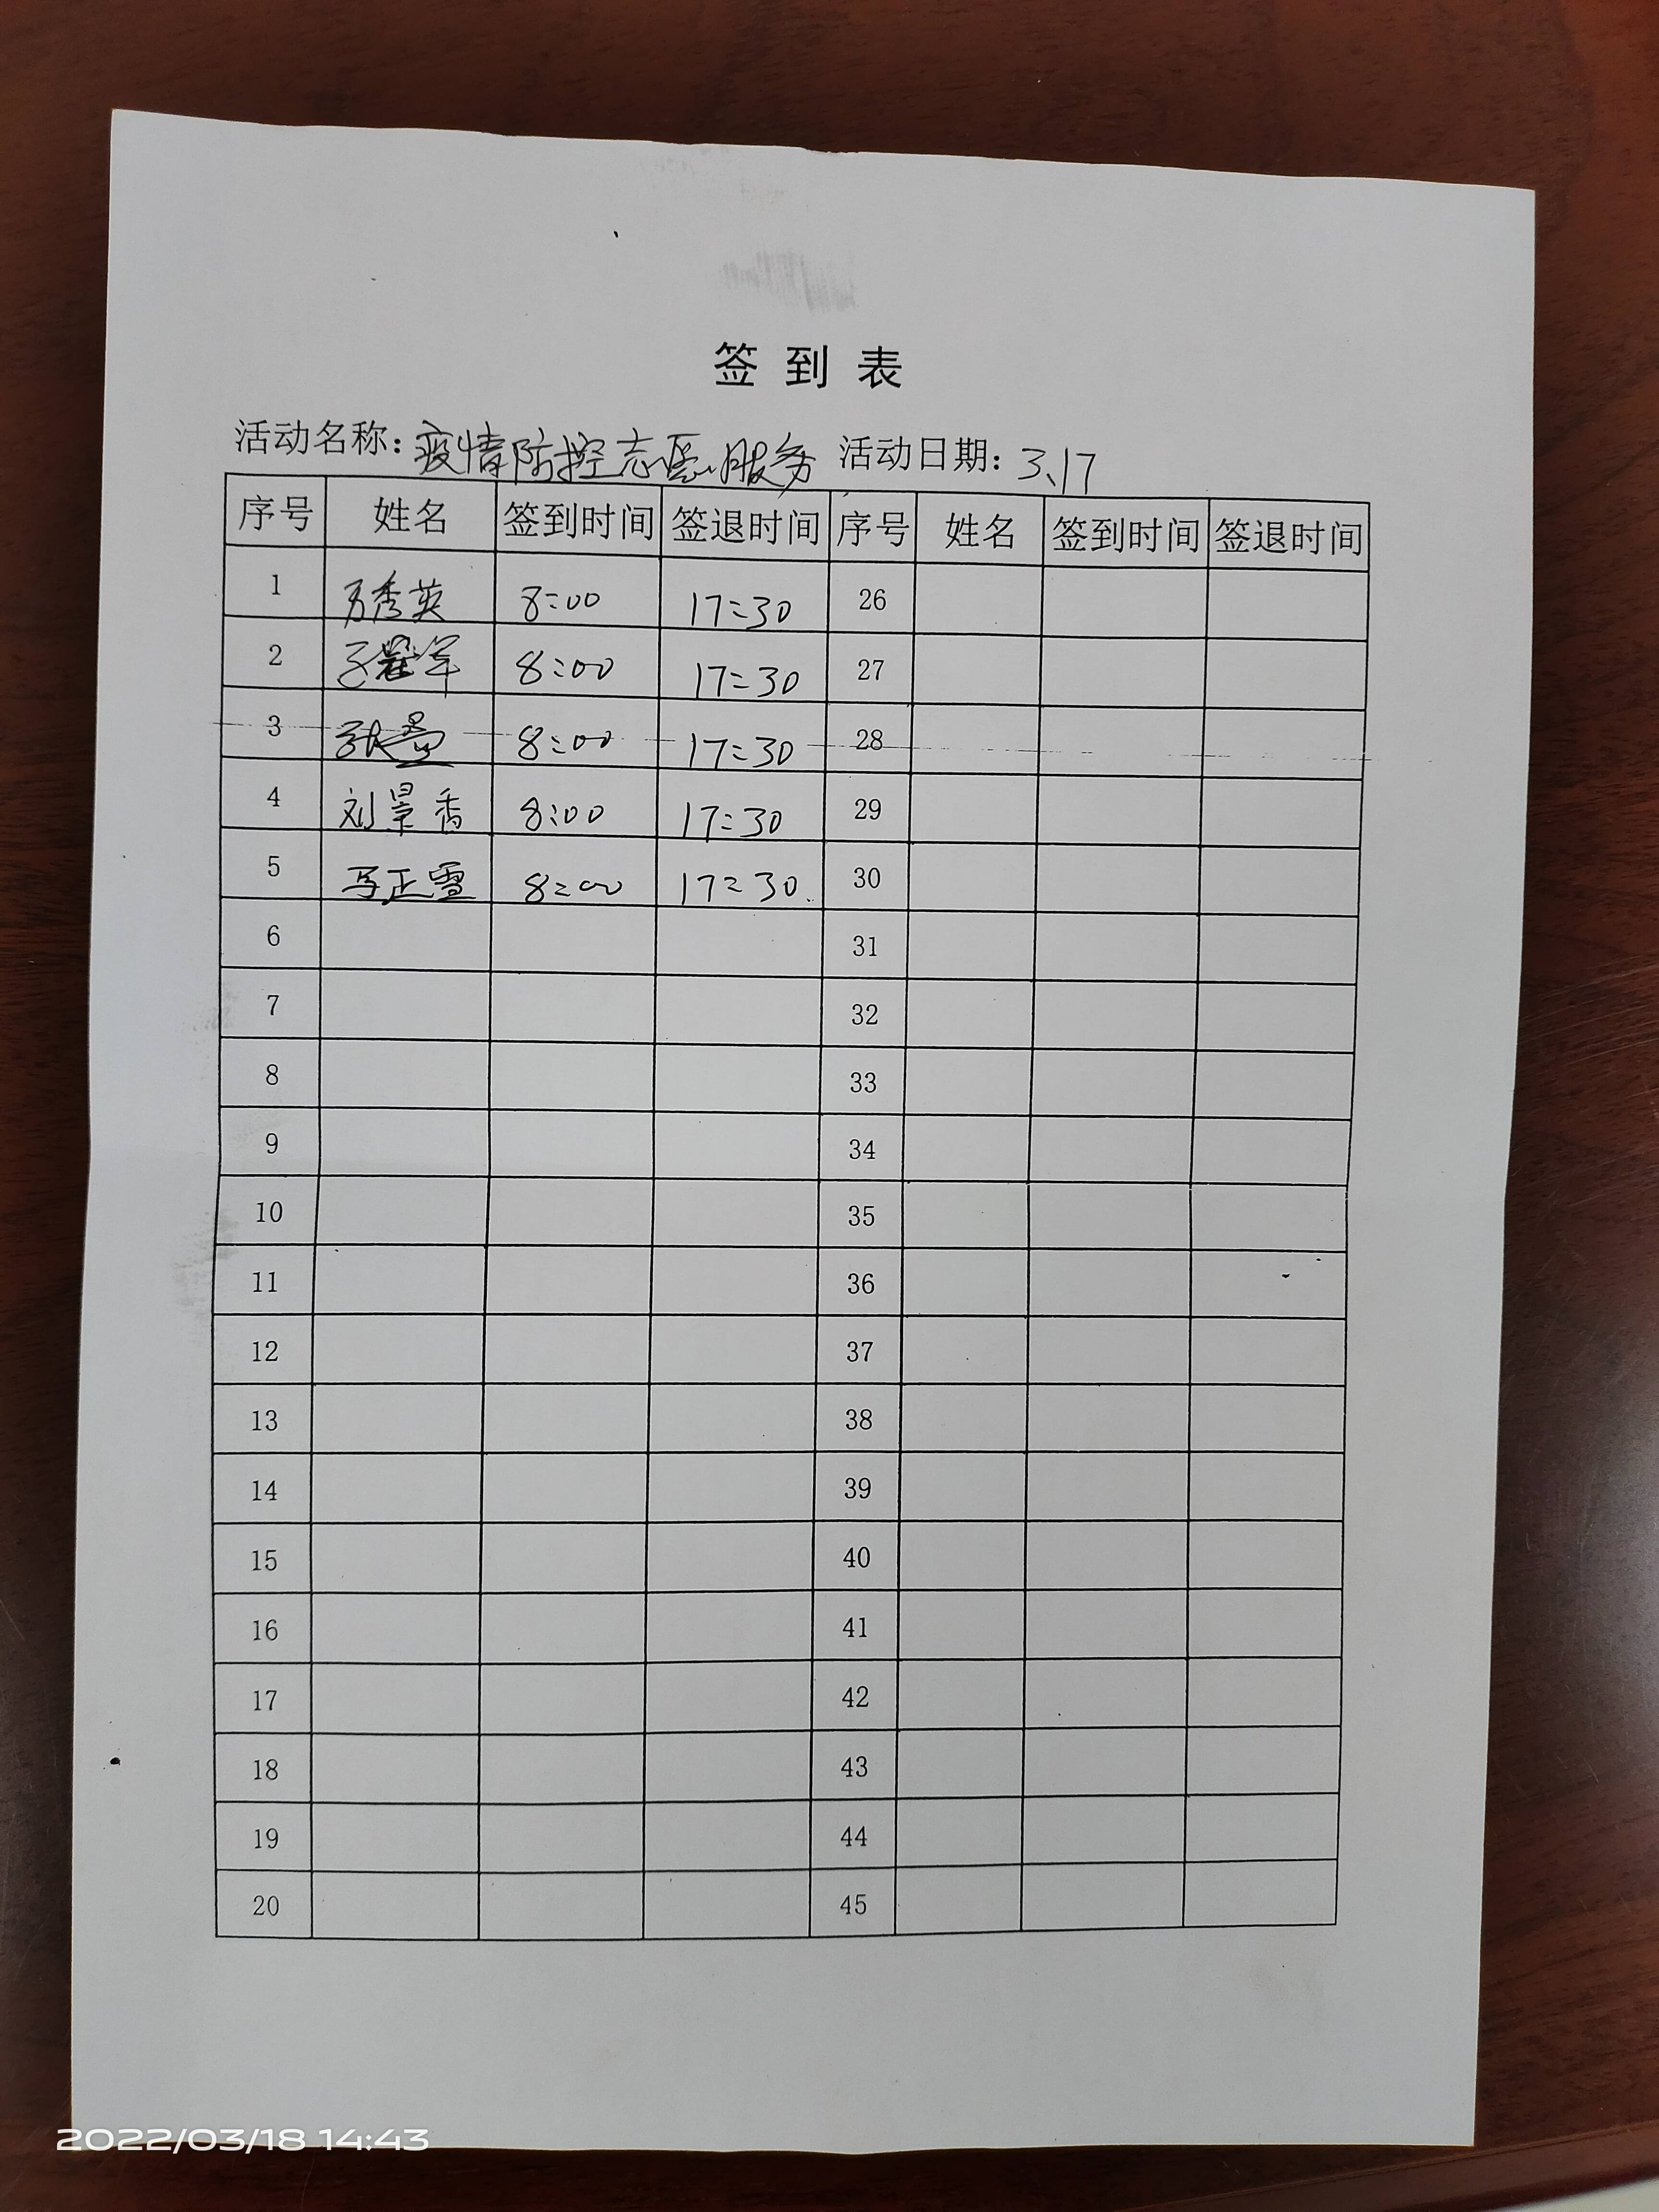 签到表
活动名称：疫情防控志愿服务 活动日期：3.17
序号 姓名 签到时间 签退时间 序号 姓名 签到时间 签退时间
1 万秀英 8:00 17:30 26
2 8:00 17:30 27
3 8:00 17:30 28
4 刘景香 8:00 17:30 29
5 马正雪 8:00 17:30 30
6 31
7 32
8 33
9 34
10 35
11 36
12 37
13 38
14 39
15 40
16 41
17 42
18 43
19 44
20 45
2022/03/18 14:43